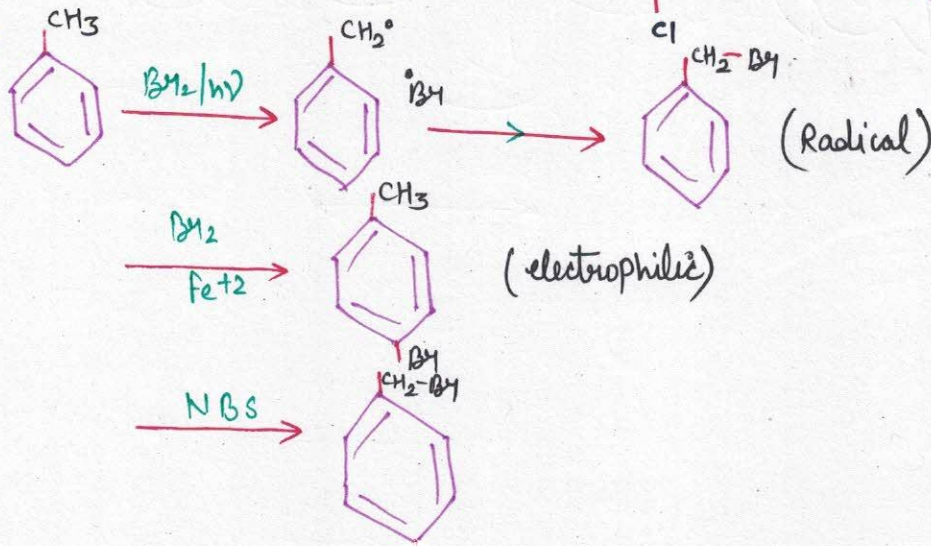 Cl
CH3
Br2/hν
CH2•
•Br
CH2-Br
(Radical)
Br2
Fe+2
CH3
Br
(electrophilic)
NBS
CH2-Br